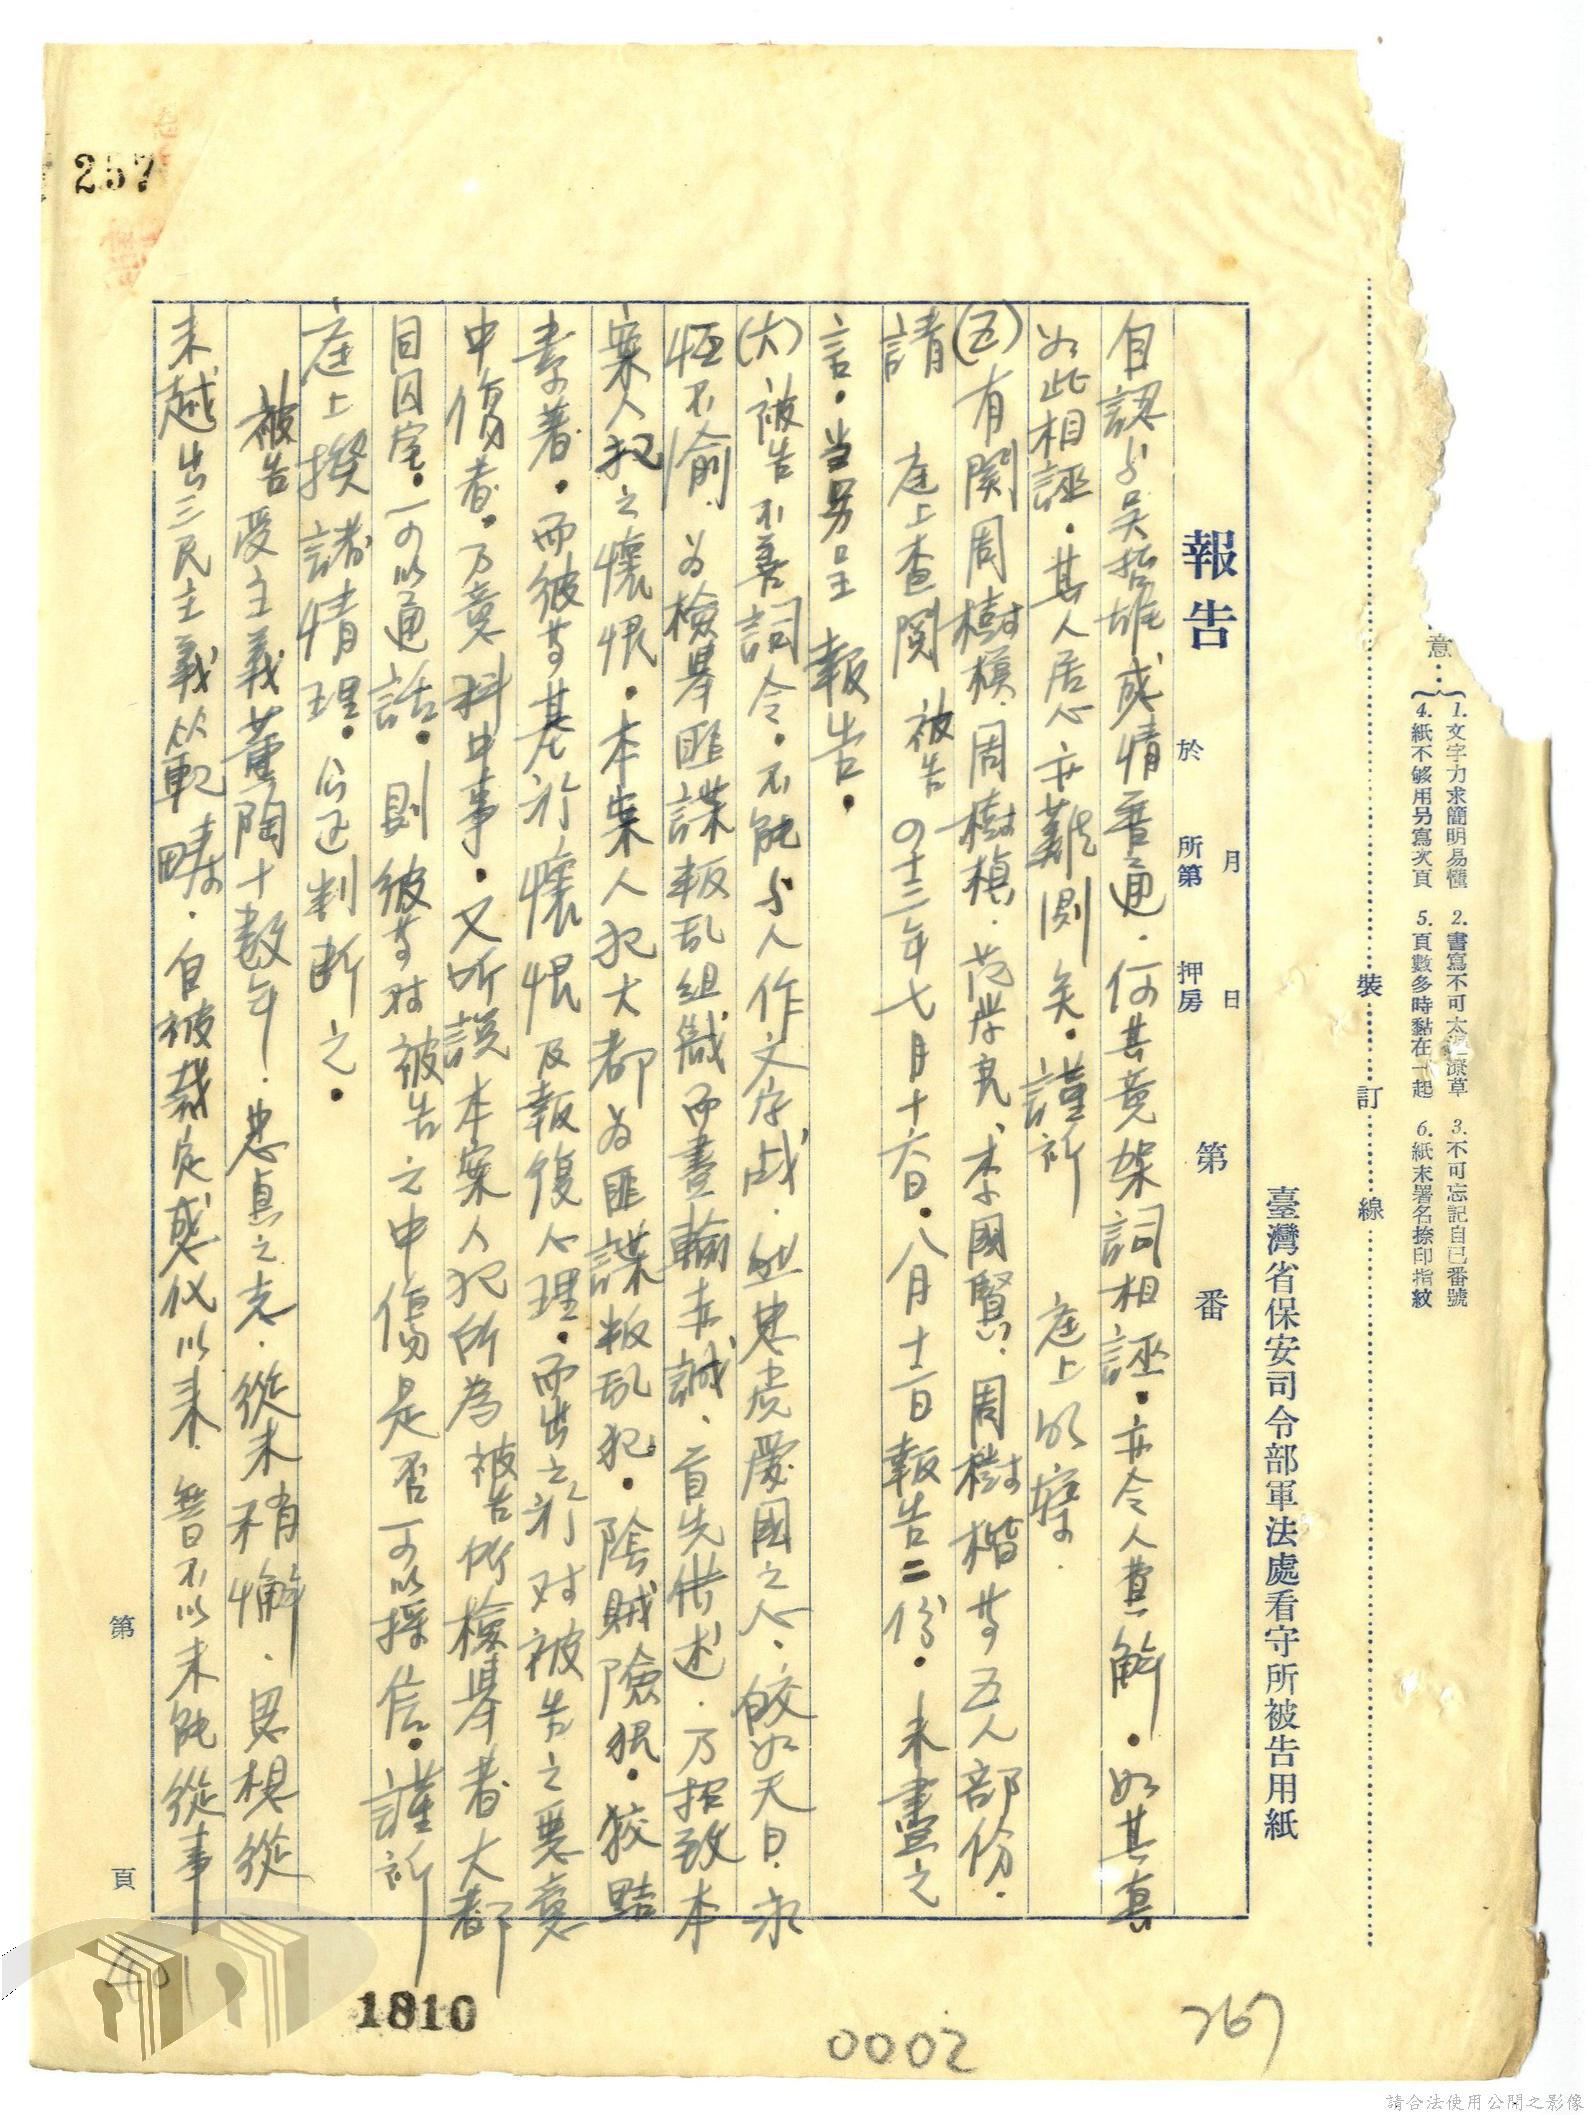 意…{1.文字力求簡明易懂 2.書寫不可太潦草 3.不可忘記自己番號
4.紙不够用另寫次頁 5.頁數多時黏在一起 6.紙末署名捺印指紋
裝 訂 線
臺灣省保安司令部軍法處看守所被告用紙
月 日
報告 於 所第 押房 第 番
自認与吳哲雄感情普通．何其竟架詞相誣．亦令人費解．如其真
如此相誣．其人居心亦難測矣．謹祈 庭上明察．
(五)有関周樹模．周樹楨．范学亮、李國賢．周樹楷等五人部份．
請 庭上查閱 被告 四十三年七月十六日．八月十二日報告二份．未盡之
言．当另呈 報告．
(六)被告不善詞令．不能与人作文字战．然忠贞愛國之心．皎如天日．永
恆不渝．为檢舉匪諜叛乱組織而盡輸素誠、首先供述．乃招致本
案人犯之懷恨．本案人犯大都为匪諜叛乱犯．陰賊險狠．狡黠
素著．而彼等基於懷恨及報復心理．而出之於对被告之惡意
中傷者．乃意料中事．又所誤本案人犯所為被告所檢舉者大都
目囚室．可以通話．則彼等对被告之中傷是否可以採信．謹祈
庭上揆諸情理．公正判断之．
被告受主義薰陶十数年．忠貞之志．從未稍懈．思想從
未越出三民主義的範疇．自被裁定感化以来．無日不以未能從事
第 頁
257
401
1810
0002
267
請合法使用公開之影像